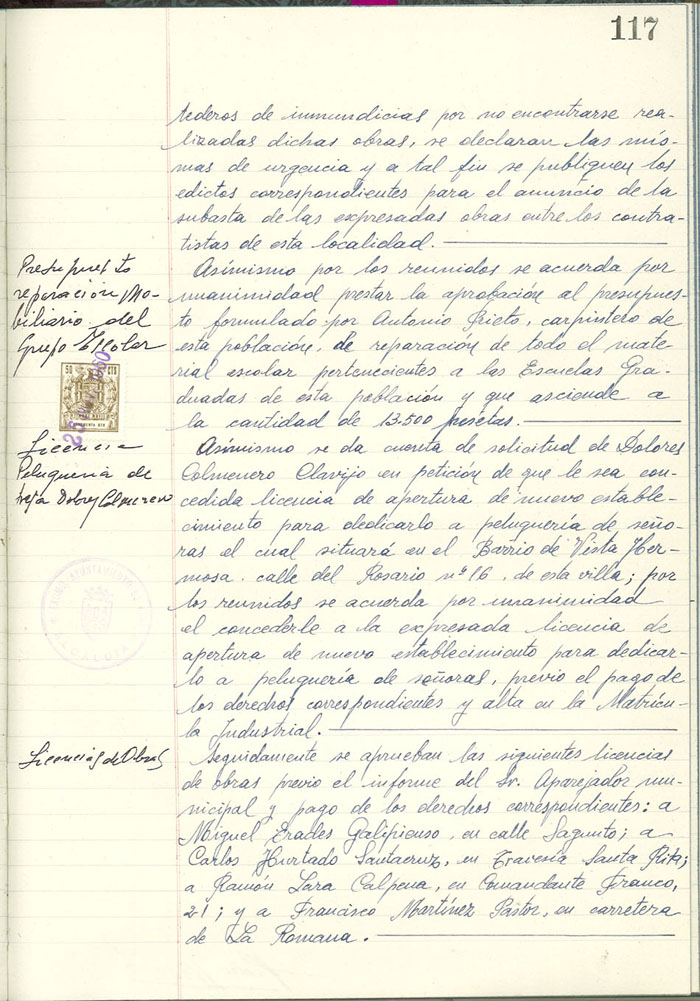 117
tederos de inmundicias por no encontrarse rea-
lizadas dichas obras, se declaran las mis-
mas de urgencia y a tal fin se publiquen los
edictos correspondientes para el anuncio de la
subasta de las expresadas obras entre los contra-
tistas de esta localidad.
Presupuesto
reparación Mo-
biliario del
Grupo Escolar
Asimismo por los reunidos se acuerda por
unanimidad prestar la aprobación al presupues-
to formulado por Antonio Prieto, carpintero de
esta población, de reparación de todo el mate-
rial escolar pertenecientes a las Escuelas Gra-
duadas de esta población y que asciende a
la cantidad de 13.500 pesetas.
50 CTS
Licencia
Peluquería de
Asimismo se da cuenta de solicitud de Dolores
Colmenero Clavijo en petición de que le sea con-
cedida licencia de apertura de nuevo estable-
cimiento para dedicarlo a peluquería de seño-
ras el cual situará en el Barrio de Vista Her-
mosa. calle del Rosario nº 16, de esta villa; por
los reunidos se acuerda por unanimidad
el concederle a la expresada licencia de
apertura de nuevo establecimiento para dedicar-
lo a peluquería de señoras, previo el pago de
los derechos correspondientes y alta en la Matrícu-
la Industrial.
ALCALDIA
Licencias de Obras
Seguidamente se aprueban las siguientes licencias
de obras previo el informe del Sr. Aparejador mu-
nicipal y pago de los derechos correspondientes: a
Miguel Erades Galipienso, en calle Sagunto; a
Carlos Hurtado Santacruz, en Travesía Santa Rita;
a Ramón Lara Calpena, en Comandante Franco,
21; y a Francisco Martínez Pastor, en carretera
de La Romana.